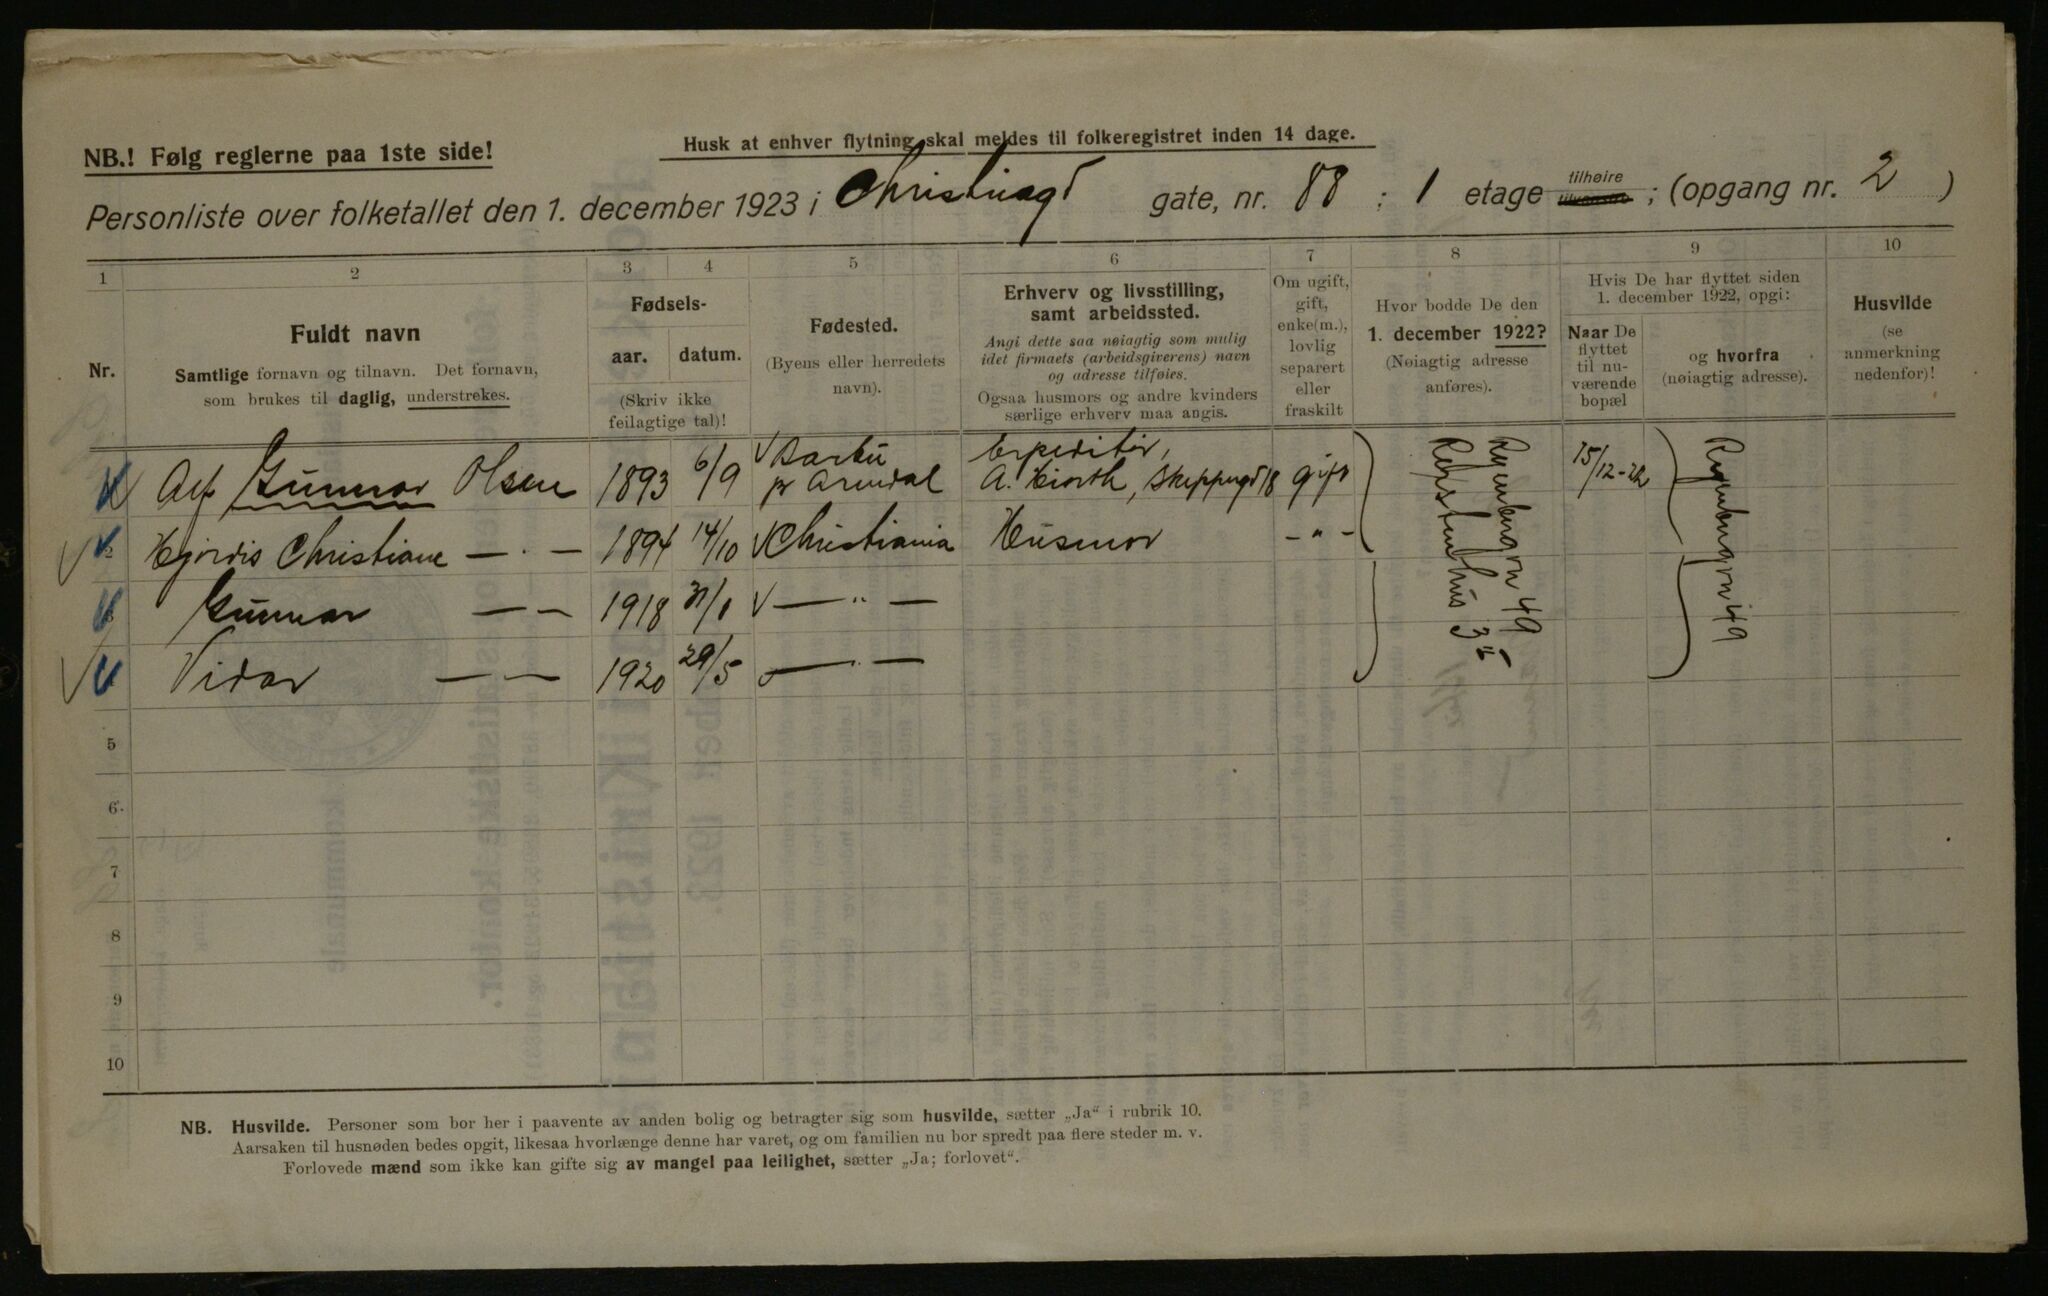 NB.! Følg reglerne paa 1ste side!
Husk at enhver flytning skal meldes til folkeregistret inden 14 dage.
Personliste over folketallet den 1. december 1923 i Christiesgt gate, nr. 88 ; 1 etage tilhøire tilvenstre ; (opgang nr. 2 )
1 2 3 4 5 6 7 8 9 10
Nr.
Fuldt navn
Samtlige fornavn og tilnavn. Det fornavn,
som brukes til daglig, understrekes.
Fødsels-
aar. datum.
(Skriv ikke
feilagtige tal)!
Fødested.
(Byens eller herredets
navn).
Erhverv og livsstilling,
samt arbeidssted.
Angi dette saa nøiagtig som mulig
idet firmaets (arbeidsgiverens) navn
og adresse tilføies.
Ogsaa husmors og andre kvinders
særlige erhverv maa angis.
Om ugift,
gift,
enke(m.),
lovlig
separert
eller
fraskilt
Hvor bodde De den
1. december 1922?
(Nøiagtig adresse
anføres).
Hvis De har flyttet siden
1. december 1922, opgi:
Naar De
flyttet
til nu-
værende
bopæl
og hvorfra
(nøiagtig adresse).
Husvilde
(se
anmerkning
nedenfor)!
Alf Gunnar Olsen 1893 6/9 Barbu pr Arendal Expeditør, A. Hiorth, Skippergt 18 gift 15/12-22
2 Hjørdis Christiane — . — 1894 14/10 Christiania Husmor - " -
3 Gunnar — — 1918 — " —
Vidar — — 1920 29/5 — " —
Ryenbergvn 49
Ryenbergvn 49
5
6
7
8
9
10
NB. Husvilde. Personer som bor her i paavente av anden bolig og betragter sig som husvilde, sætter „Ja“ i rubrik 10.
Aarsaken til husnøden bedes opgit, likesaa hvorlænge denne har varet, og om familien nu bor spredt paa flere steder m. v.
Forlovede mænd som ikke kan gifte sig av mangel paa leilighet, sætter „Ja; forlovet“.